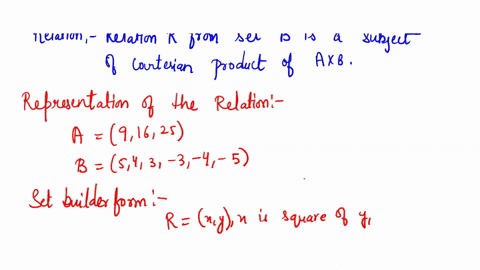 Relation,- Relation R from set B is a subject
of Carterian product of A×B.
Representation of the Relation:-
A = (9, 16, 25)
B = (5, 4, 3, -3, -4, -5)
Set builder form:-
R = (x, y), x is square of y,